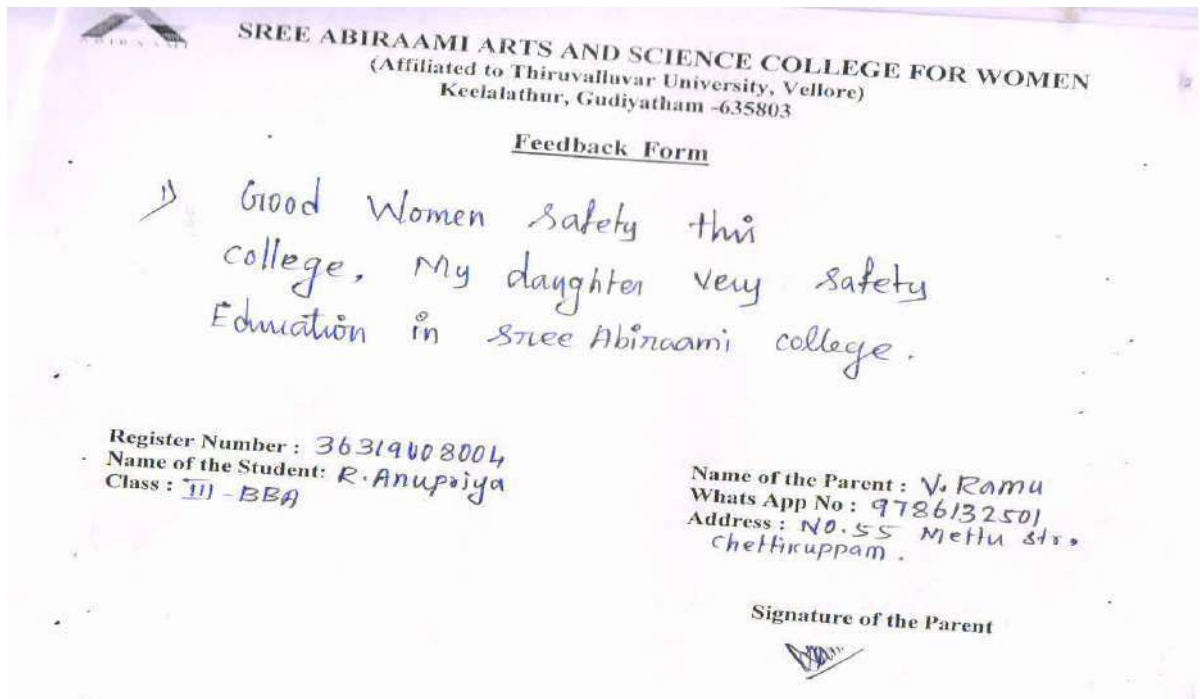 ABIRAAMI
SREE ABIRAAMI ARTS AND SCIENCE COLLEGE FOR WOMEN
(Affiliated to Thiruvalluvar University, Vellore)
Keelalathur, Gudiyatham -635803
Feedback Form
1) Good Women safety this
college, My daughter very safety
Education in Sree Abiraami college.
Register Number : 36319U08004
Name of the Student: R. Anupriya
Class : III - BBA
Name of the Parent : V. Ramu
Whats App No : 9786132501
Address : NO.55 Mettu str.
Chettikuppam.
Signature of the Parent